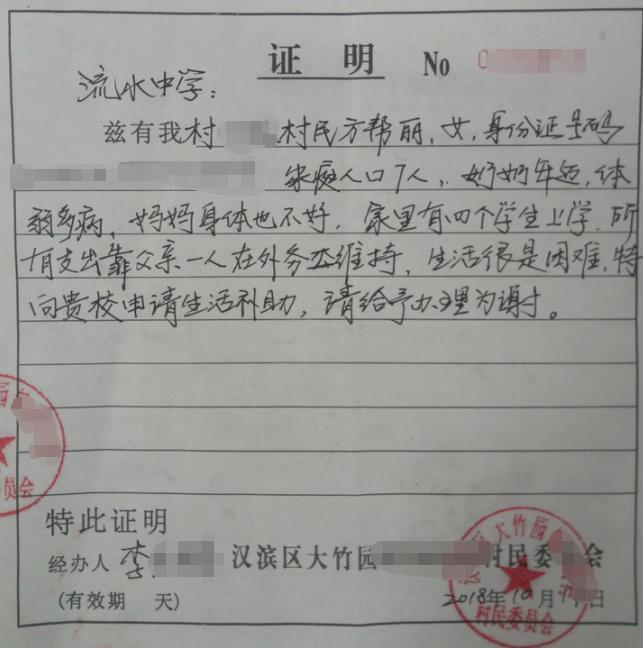 证 明 No 0
流水中学：
兹有我村 村民方帮丽，女，身份证号码
家庭人口7人，奶奶年迈，体
弱多病，妈妈身体也不好，家里有四个学生上学，所
有支出靠父亲一人在外务工维持，生活很是困难，特
向贵校申请生活补助，请给予办理为谢。
特此证明
经办人 李 汉滨区大竹园 村民委 会
(有效期 天) 2018年10月 日
区大竹园
村民委员会
员会